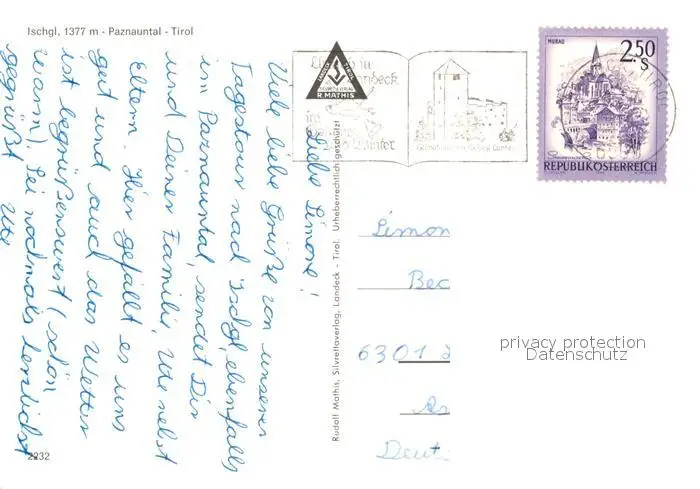 Ischgl, 1377 m - Paznauntal - Tirol
Liebe Simone!
Viele liebe Grüße von unserer
Tagestour nach Ischgl, ebenfalls
im Paznauntal, sendet Dir
und Deiner Familie, Ute nebst
Eltern. Hier gefällt es uns
gut und auch das Wetter
ist begrüßenswert (schön
warm). Sei nochmals herzlichst
gegrüßt Ute
2232
Rudolf Mathis, Silvrettaverlag, Landeck - Tirol. Urheberrechtlich geschützt!
R. MATHIS
MURAU
2.50
S
REPUBLIK ÖSTERREICH
Simon
Bec
6301
Deut
privacy protection
Datenschutz